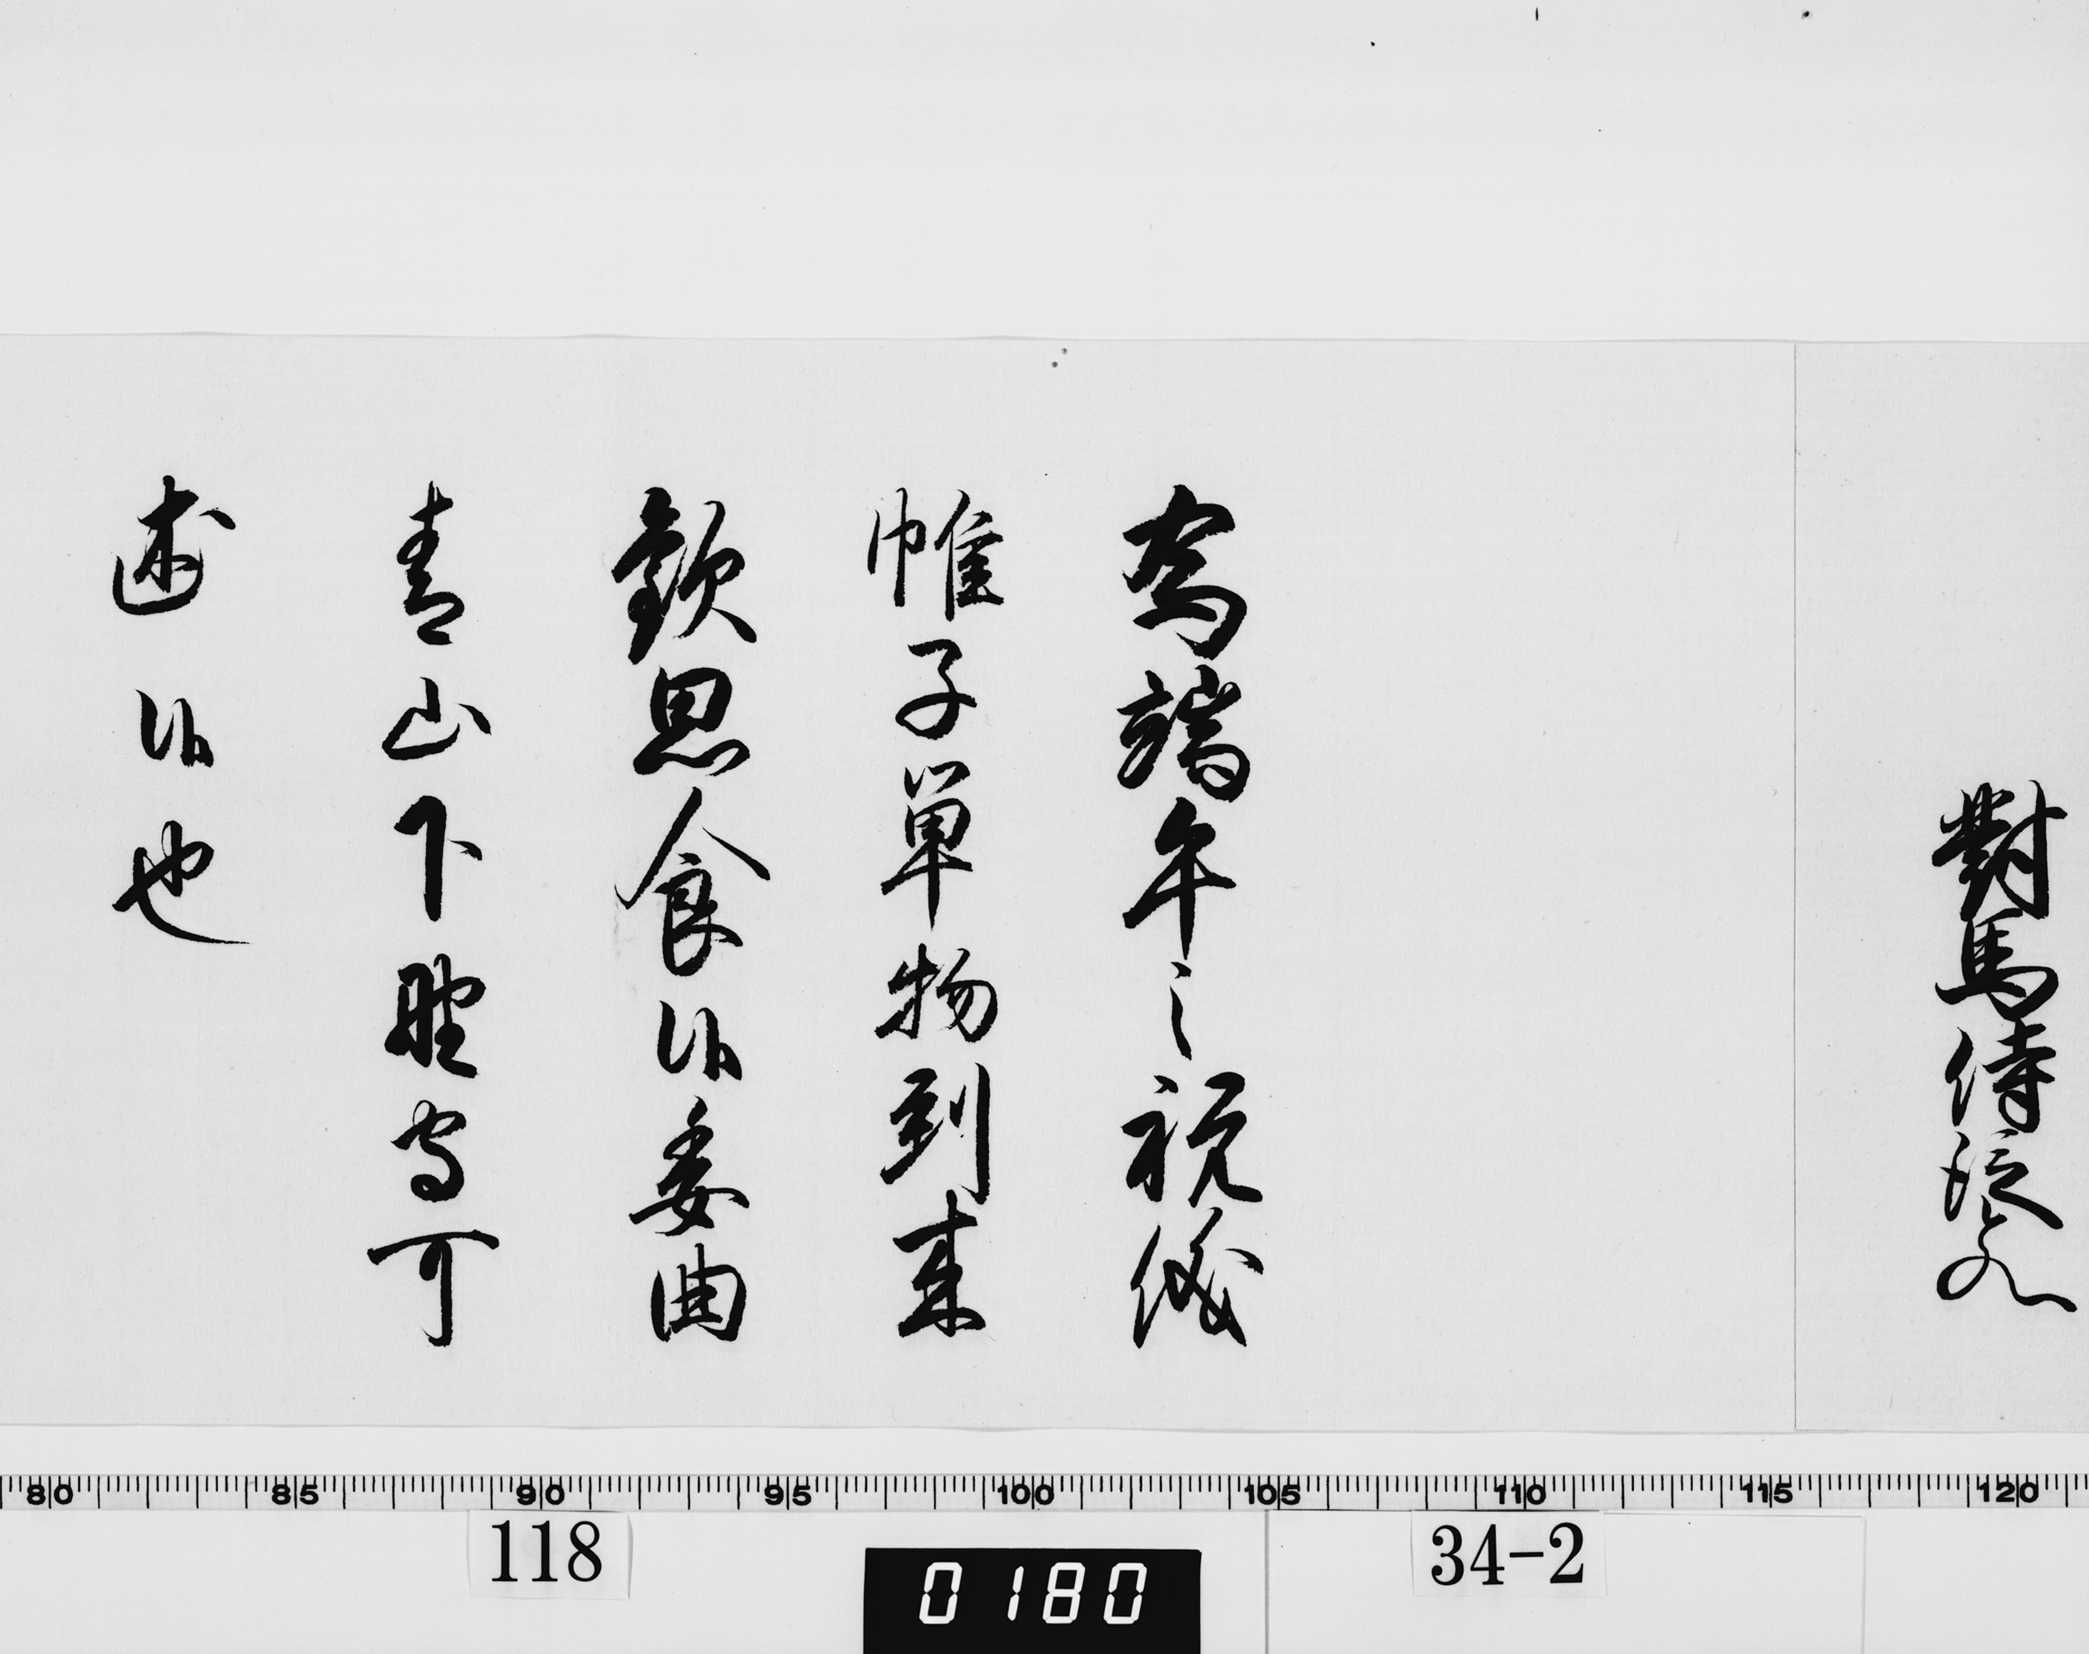 對馬侍従とのへ
為端午之祝儀
帷子単物到来
歓思食候委曲
青山下野守可
述候也
80 85 90 95 100 105 110 115 120
118
0180
34-2